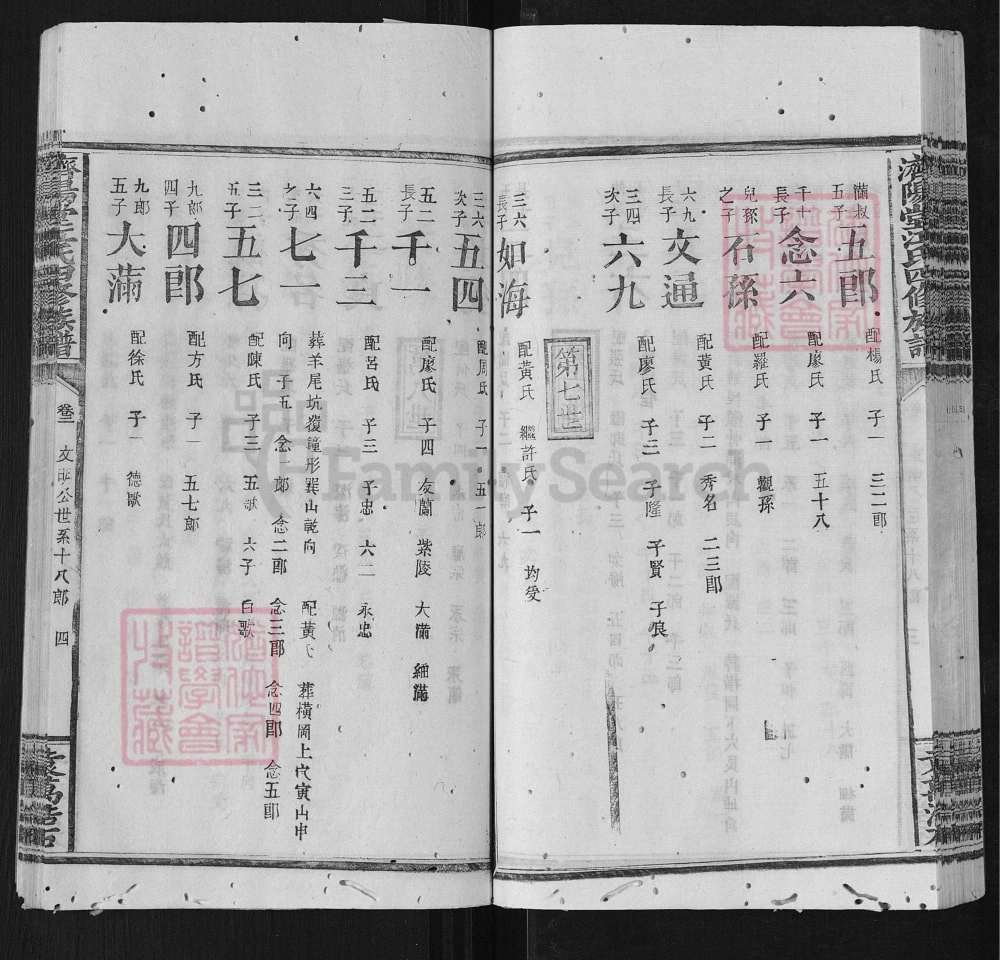 濟陽堂江氏四修族譜
滿叔五子 五郎 配楊氏 子一 三二郎
千十長子 念六 配廖氏 子一 五十八
兒孫之子 石孫 配羅氏 子一 觀孫
六九長子 文通 配黃氏 子二 秀名 二三郎
三四次子 六九 配廖氏 子三 子隆 子賢 子良
第七世
三六長子 如海 配黃氏 繼許氏 子一 均受
三六次子 五四 配周氏 子一 五一郎
五二長子 千一 配廖氏 子四 友蘭 紫陵 大滿 細滿
五二三子 千三 配呂氏 子三 子忠 六二 永忠
六四之子 七一 葬羊尾坑復鐘形巽山乾向 配黃氏 葬橫岡上穴寅山申
向 子五 念一郎 念二郎 念三郎 念四郎 念五郎
三二五子 五七 配陳氏 子三 五歌 六子 白歌
九郎四子 四郎 配方氏 子一 五七郎
九郎五子 大滿 配徐氏 子一 德歌
卷三 文明公世系十八郎 四
FamilySearch